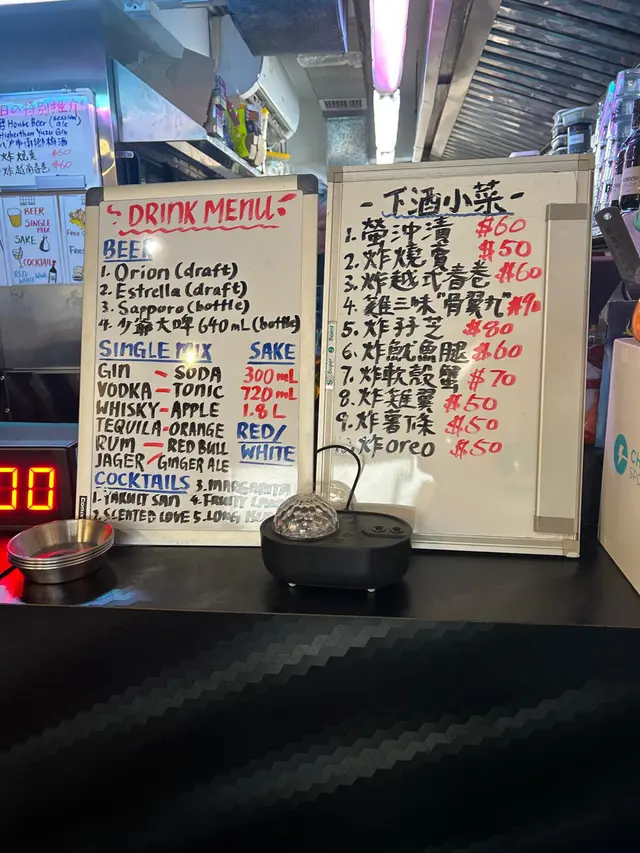 House Beer (session ale
Higherthan Yuzu Gin
炸燒賣 $50
炸越南春卷 $60
BEER
SINGLE MIX
SAKE
COCKTAIL
RED/WHITE
DRINK MENU
BEER
1. Orion (draft)
2. Estrella (draft)
3. Sapporo (bottle)
4. 少爺大啤 640mL (bottle)
SINGLE MIX SAKE
GIN - SODA 300mL
VODKA - TONIC 720mL
WHISKY - APPLE 1.8L
TEQUILA - ORANGE RED/
RUM - RED BULL WHITE
JAGER / GINGER ALE
COCKTAILS 3. MARGARITA
1. YAKULT SAN 4. FRUITY
2. SCENTED LOVE 5. LONG
- 下酒小菜 -
1. 螢沖漬 $60
2. 炸燒賣 $50
3. 炸越式春卷 $60
4. 雞三味"骨翼丸" $90
5. 炸孖芝 $80
6. 炸魷魚腿 $60
7. 炸軟殼蟹 $70
8. 炸雞翼 $50
9. 炸薯條 $50
炸oreo $50
00